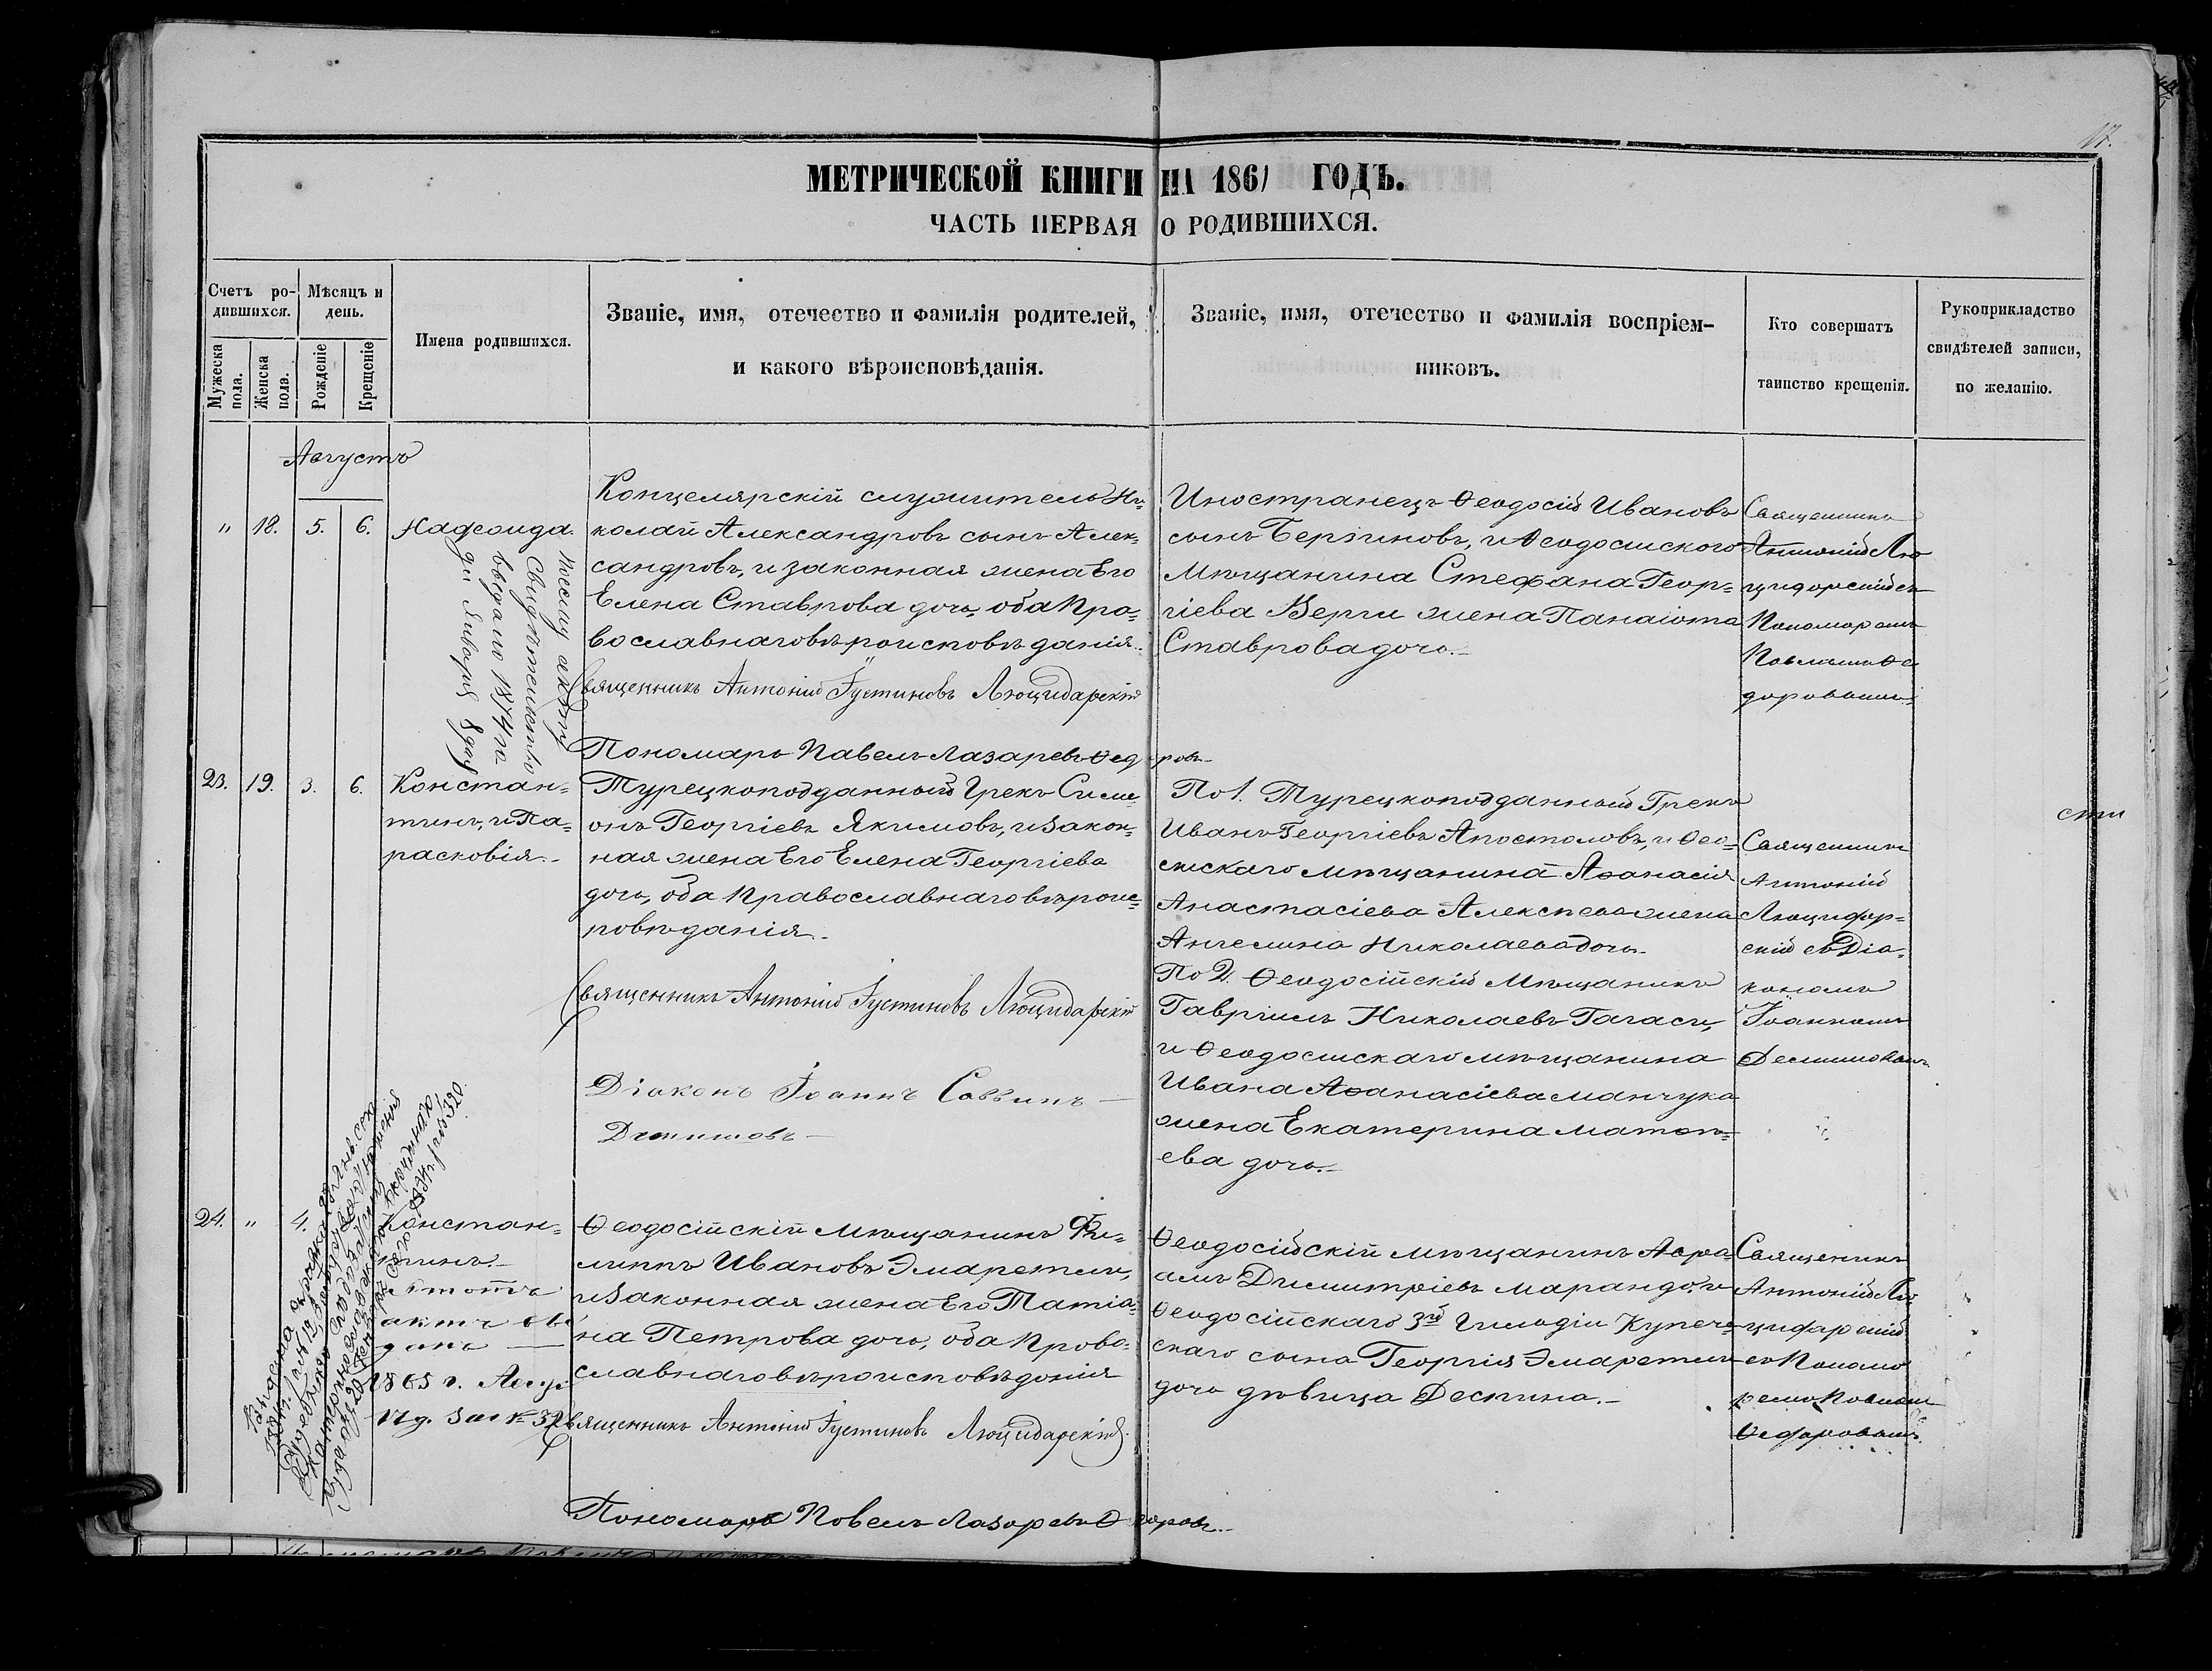 17.
МЕТРИЧЕСКОЙ КНИГИ НА 1861 ГОДЪ.
ЧАСТЬ ПЕРВАЯ О РОДИВШИХСЯ.
Счетъ ро-
дившихся.
Мужеска
пола.
Женска
пола.
Мѣсяцъ и
день.
Рожденіе
Крещеніе
Имена родившихся.
Званіе, имя, отечество и фамилія родителей,
и какого вѣроисповѣданія.
Званіе, имя, отечество и фамилія воспріем-
никовъ.
Кто совершатъ
таинство крещенія.
Рукоприкладство
свидѣтелей записи,
по желанію.
Августъ
" 18. 5. 6. Надежда.
Концелярскій служитель Ни-
колай Александровъ сынъ Алек-
сандровъ, и законная жена Его
Елена Ставрова дочь, оба Пра-
вославнаго вѣроисповѣданія.
Священникъ Антоній Іустиновъ Люцидарскій
Пономарь Павелъ Лазаревъ Ѳедоровъ
Иностранецъ Ѳеодосій Ивановъ
сынъ Бергиновъ, и Ѳеодосійского
Мѣщанина Стефана Геор-
гіева Верги жена Панаіота
Ставрова дочь.
Священникъ
Антоній Лю-
цидорскій съ
Пономоремъ
Повломъ Ѳе
доровымъ
23. 19. 3. 6. Констан-
тинъ, и Па-
расковія.
Турецкоподданный Грекъ Симе-
онъ Георгіевъ Якимовъ, и закон-
ная жена Его Елена Георгіева
дочь, оба Православнаго вѣроис-
повѣданія.
Священникъ Антоній Іустиновъ Люцидарскій
Діаконъ Іоаннъ Саввинъ
Демишовъ
По 1. Турецкоподданный Грекъ
Иванъ Георгіевъ Апостоловъ, и Ѳео-
сійскаго мѣщанина Аѳанасія
Анастасіева Алексѣева жена
Ангелина Николаева дочь.
По 2. Ѳеодосійскій Мѣщанинъ
Гавріилъ Николаевъ Гагаси,
и Ѳеодосійскаго мѣщанина
Ивана Аѳанасіева Манчука
жена Екатерина Матѳѣ-
ева дочь.
Священникъ
Антоній
Люцидор-
скій съ Діа-
кономъ
Іоанномъ
24. " 4.
Констан-
тинъ.
Ѳеодосійскій мѣщанинъ Фи-
липпъ Ивановъ Эмаретли,
и законная жена Его Татіа-
на Петрова дочь, оба Право-
славнаго вѣроисповѣданія
Священникъ Антоній Іустиновъ Люцидарскій
Пономарь Повелъ Лазоревъ Ѳедоровъ
Ѳеодосійскій мѣщанинъ Авра-
амъ Димитріевъ Марандо, и
Ѳеодосійскаго 3й Гильдіи Купече-
скаго сына Георгія Эмаретли
дочь дѣвица Деспина.
Священикъ
Антоній Лю-
цидарскій
съ Поно мо
ремъ Повломъ
Ѳедоровымъ.